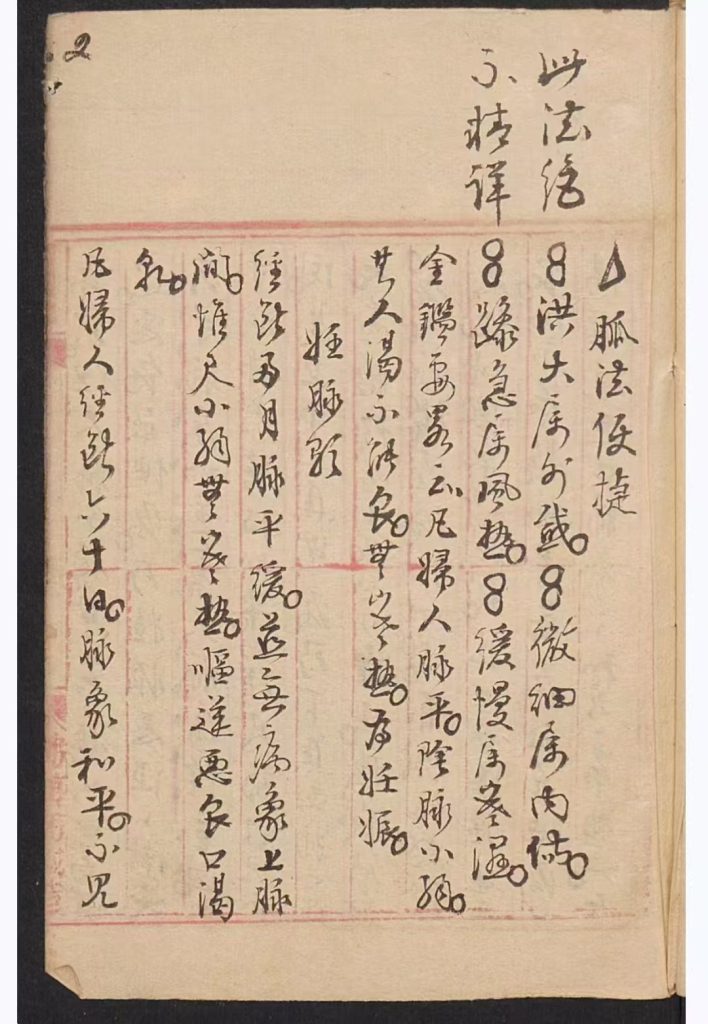 2
此法
不精詳
脈法便捷
8洪大属外感。8微細属内傷。
8躁急属風热。8緩慢属寒濕。
金鑑要畧云凡婦人脉平。陰脉小弱。
其人渴不能食。無寒热。為妊娠。
妊脉
經断两月脉平緩。並無病象上脉
間。惟尺小弱無寒热。嘔逆惡食口渴
乳。
凡婦人經断六十日。脉象和平。不見